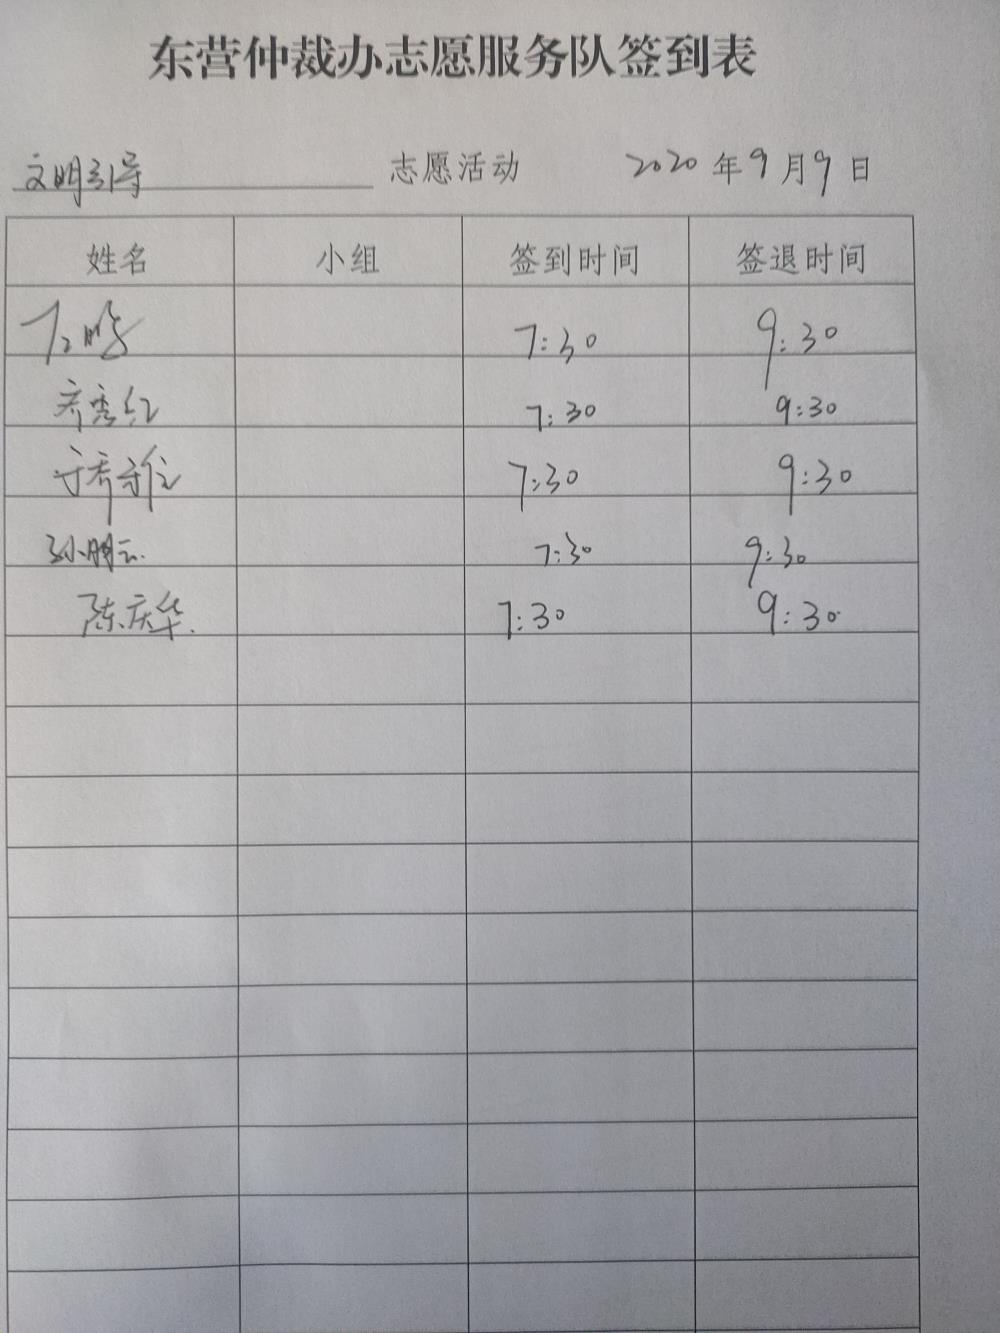 东营仲裁办志愿服务队签到表
文明引导 志愿活动 2020年9月9日
姓名 小组 签到时间 签退时间
7:30 9:30
齐秀红 7:30 9:30
7:30 9:30
孙鹏云 7:30 9:30
陈庆华 7:30 9:30